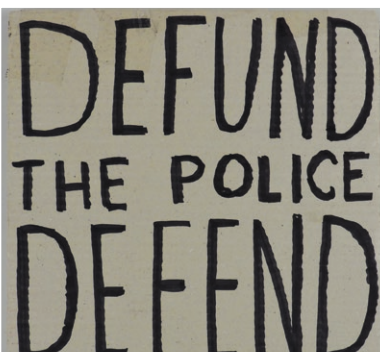 DEFUND
THE POLICE
DEFEND